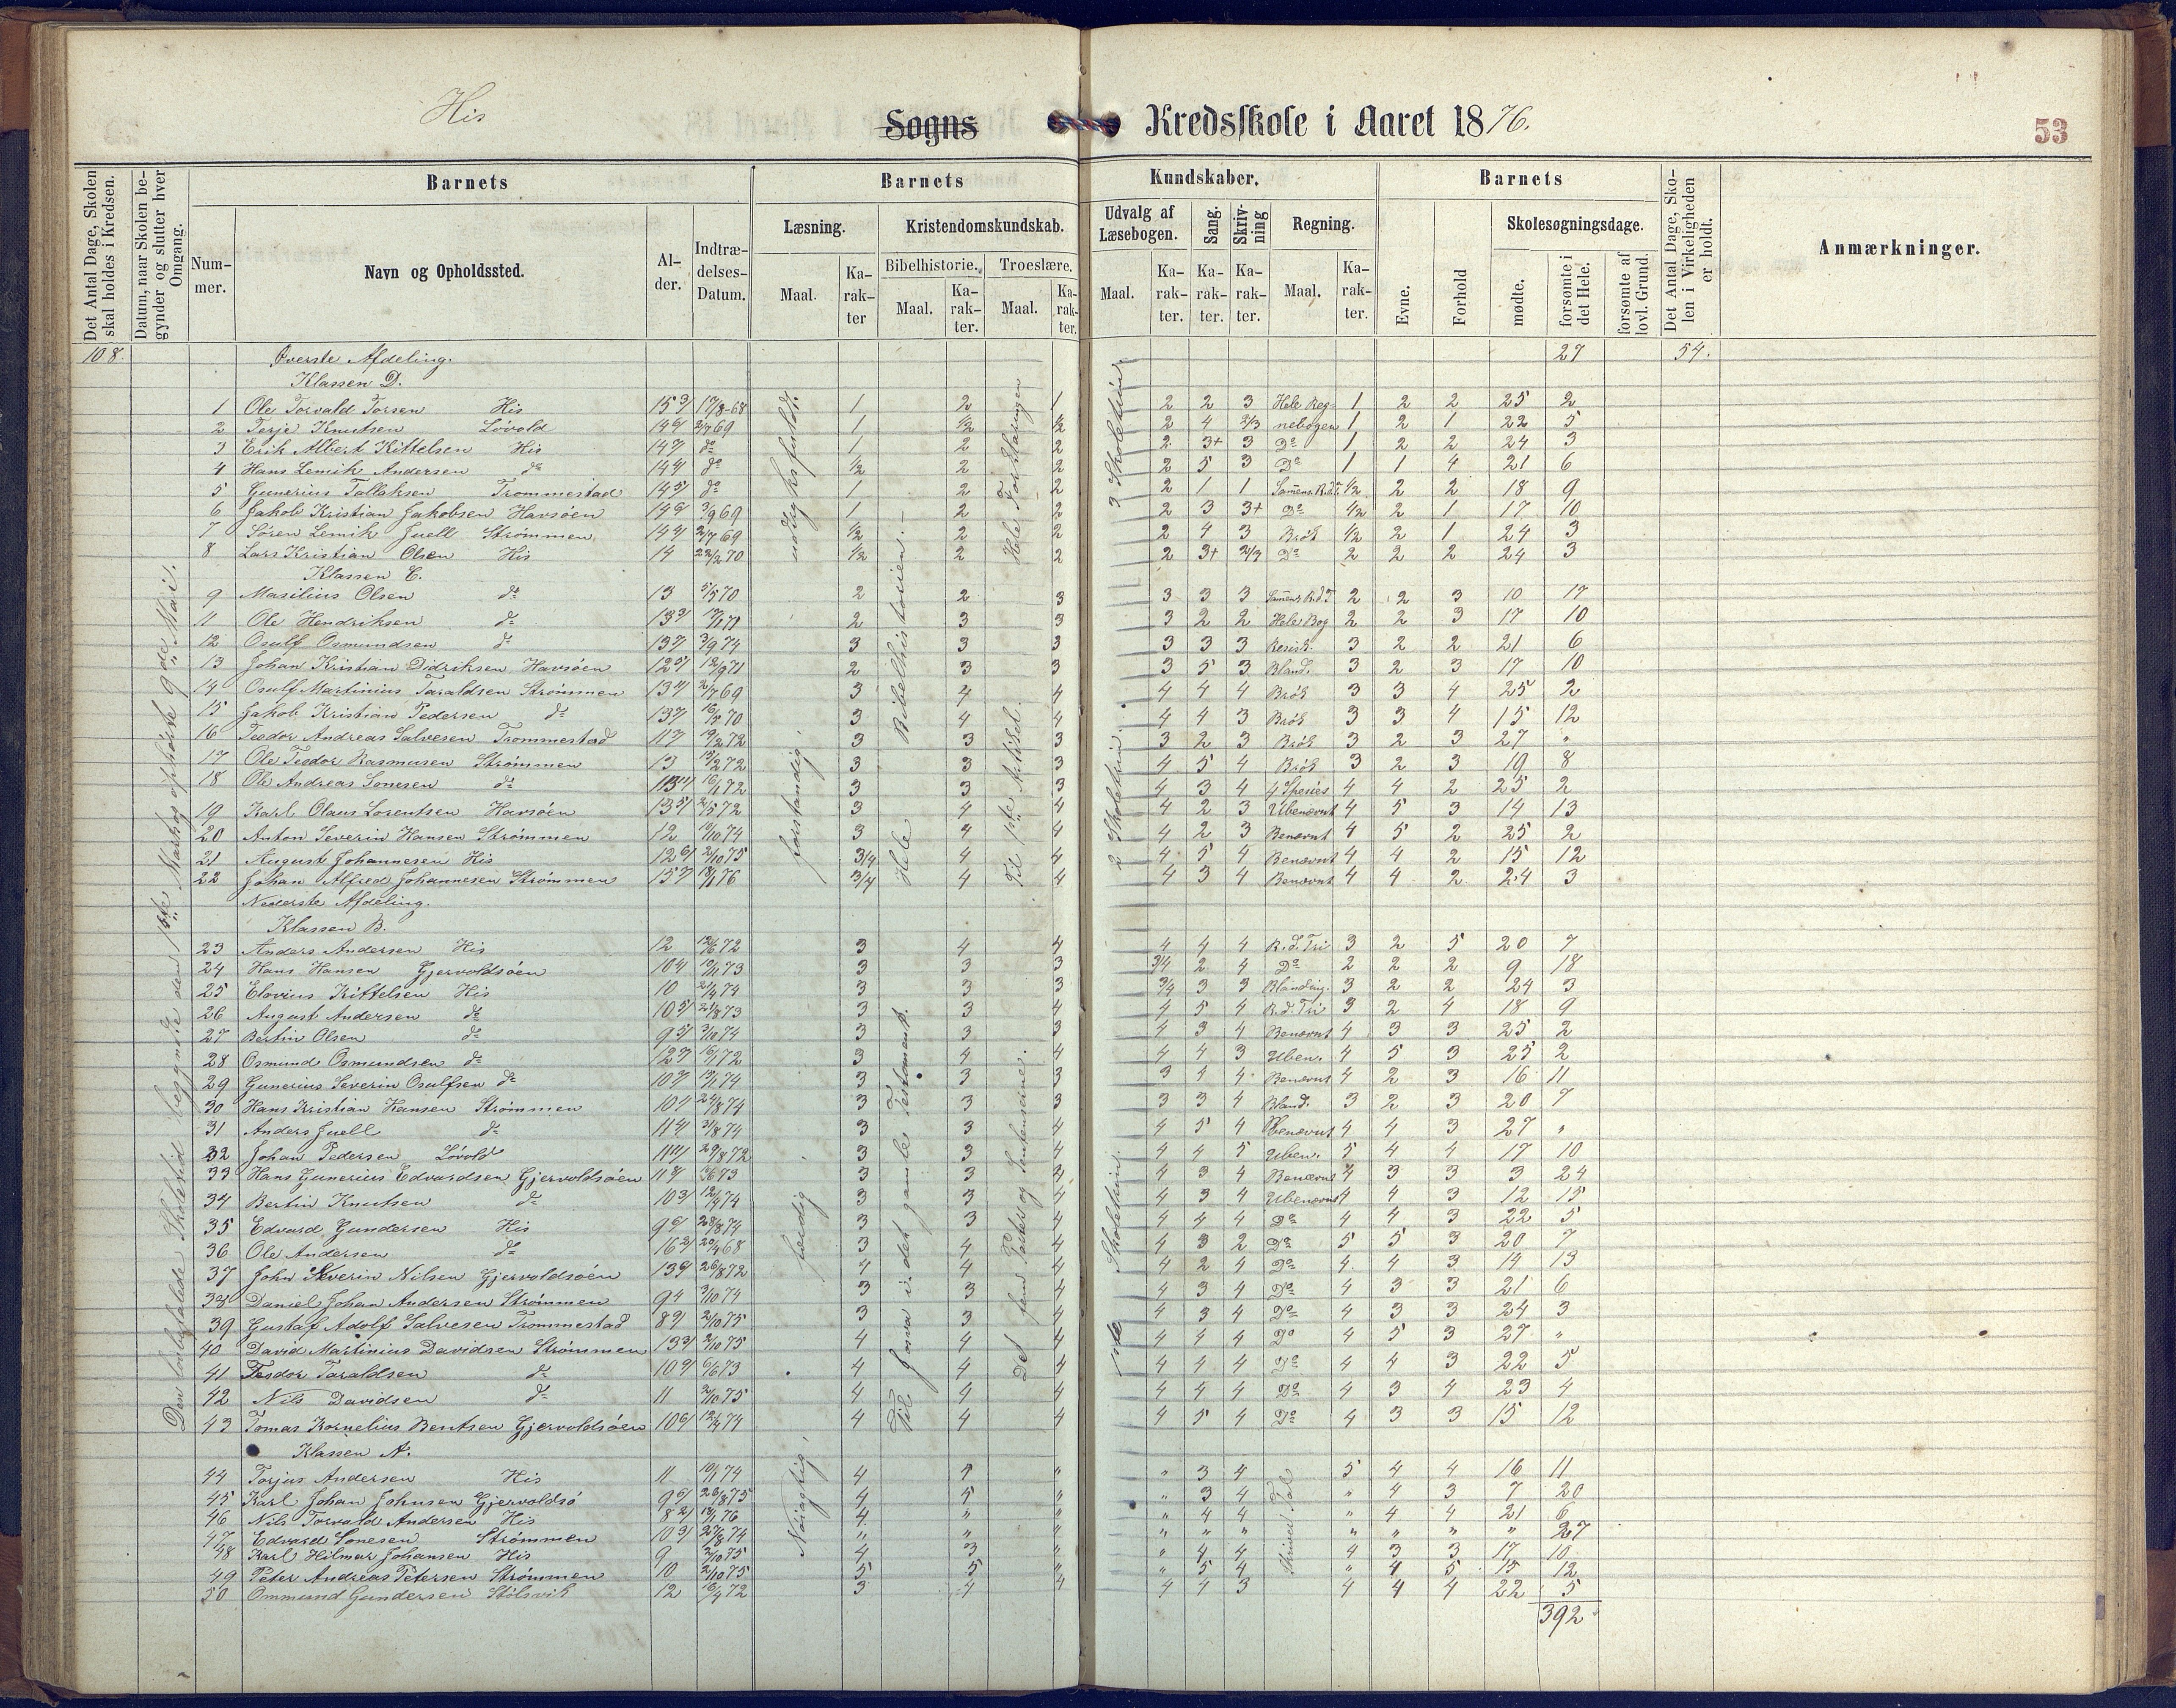 His Sogns Kredsskole i Aaret 1876.
53
Det Antal Dage, Skolen skal holdes i Kredsen.
Datum, naar Skolen begynder og slutter hver Omgang.
Barnets
Nummer.
Navn og Opholdssted.
Alder.
Indtrædelses-Datum.
Barnets Kundskaber.
Læsning.
Maal.
Karakter
Kristendomskundskab.
Bibelhistorie.
Maal.
Karakter.
Troeslære.
Maal.
Karakter.
Udvalg af Læsebogen.
Maal.
Karakter.
Sang.
Karakter.
Skrivning
Karakter.
Regning.
Maal.
Karakter.
Barnets
Evne.
Forhold
Skolesøgningsdage.
mødte.
forsømte i det Hele.
forsømte af lovl. Grund.
Det Antal Dage, Skolen i Virkeligheden er holdt.
Anmærkninger.
108. Øverste Afdeling. 27 54.
Klassen D.
1 Ole Torvald Torsen His 1 2 1 2 2 3 Hele Reg- 1 2 2 25 2
2 Terje Knutsen Lövold 1 1/2 1/2 2 4 2/3 nebogen 1 2 1 22 5
3 Erik Albert Kittelsen His do 1 2 2 2 3+ 3 Do 1 2 2 24 3
4 Hans Lemik Andersen do do 1/2 2 2 2 5 3 Do 1 1 4 21 6
5 Gunerius Tallaksen Trommestad do 1 2 2 2 1 1 1/2 2 2 18 9
6 Jakob Kristian Jakobsen Havsöen 1 2 2 2 3 3+ Do 1/2 2 1 17 10
7 Sören Lemik Juell Strömmen 1/2 2 2 2 4 3 Brök 1/2 2 1 24 3
8 Lars Kristian Olsen His 14 22/2 70 1/2 2 2 2 3+ 2/3 Do 2 2 2 24 3
Klassen C.
9 Masilius Olsen do 13 5/5 70 2 2 3 3 3 3 2 2 3 10 17
11 Ole Hendriksen do 2 3 3 3 2 2 Hele Bog 2 2 3 17 10
12 Osulf Osmundsen do 3 3 3 3 3 3 3 2 2 21 6
13 Johan Kristian Didriksen Havsöen 2 3 3 3 5 3 Bland. 3 2 3 17 10
14 Osulf Martinius Taraldsen Strömmen 3 4 4 4 4 4 Brök 3 3 4 25 2
15 Jakob Kristian Pedersen do 3 4 4 4 4 3 Brök 3 3 4 15 12
16 Teodor Andreas Salvesen Trommestad 3 3 3 3 2 3 Brök 3 2 3 27 "
17 Ole Teodor Rasmusen Strömmen 13 3 3 3 4 5 4 Brök 3 2 3 19 8
18 Ole Andreas Sonesen do 3 3 3 4 3 4 4 Species 4 4 2 25 2
19 Karl Olaus Lorentsen Havsöen 3 4 4 4 2 3 Ubenævnt 4 5 3 14 13
20 Anton Severin Hansen Strömmen 12 3 4 4 4 2 3 Benævnt 4 5 2 25 2
21 August Johannesen His 3/4 4 4 4 5 4 Benævnt 4 4 2 15 12
22 Johan Alfred Johannesen Strömmen 3/4 4 4 4 3 4 Benævnt 4 4 2 24 3
Nederste Afdeling.
Klassen B.
23 Anders Andersen His 12 3 4 4 4 4 4 R. d. Tri 3 2 5 20 7
24 Hans Hansen Gjervoldsöen 3 3 3 3/4 2 4 Do 2 2 2 9 18
25 Elovius Kittelsen His 10 3 3 3 3/4 3 3 Blanding. 3 2 2 24 3
26 August Andersen do 3 3 4 4 5 4 R. d. Tri 3 2 4 18 9
27 Bertin Olsen do 3 3 3 4 3 4 Benævnt 4 3 3 25 2
28 Osmund Osmundsen do 3 4 4 4 4 3 Uben. 4 5 3 25 2
29 Gunerius Severin Osulfsen do 3 3 3 3 4 4 Benævnt 4 2 3 16 11
30 Hans Kristian Hansen Strömmen 3 3 3 3 3 4 Bland. 3 2 3 20 7
31 Anders Juell do 3 3 4 4 5 4 4 4 3 27 "
32 Johan Pedersen Lövold 3 3 4 4 4 5 Uben. 5 4 4 17 10
33 Hans Gunerius Edvardsen Gjervoldsöen 3 3 4 4 3 4 Benævnt 4 3 3 3 24
34 Bertin Knutsen do 3 3 4 4 3 4 Ubenævnt 4 4 3 12 15
35 Edvard Gundersen His 3 3 4 4 4 4 Do 4 4 3 22 5
36 Ole Andersen do 3 4 4 4 3 2 Do 5 5 3 20 7
37 John Severin Nilsen Gjervoldsöen 4 4 4 4 2 4 Do 4 4 3 14 13
38 Daniel Johan Andersen Strömmen 3 3 4 4 3 4 Do 4 3 3 21 6
39 Gustaf Adolf Salvesen Trommestad 3 3 4 4 3 4 Do 4 3 3 24 3
40 David Martinius Davidsen Strömmen 4 4 4 4 4 4 Do 4 5 3 27 "
41 Teodor Taraldsen do 4 4 4 4 4 4 Do 4 4 3 22 5
42 Nils Davidsen do 11 4 4 4 4 4 4 Do 4 3 4 23 4
43 Tomas Kornelius Bentsen Gjervoldsöen 4 4 4 4 5 4 Do 4 3 3 15 12
Klassen A.
44 Torjus Andersen His 11 4 " " 3 4 5 4 4 16 11
45 Karl Johan Johnsen Gjervoldsö 4 5 " " 3 4 " 4 3 7 20
46 Nils Torvald Andersen His 4 " " " 4 4 " 4 4 21 6
47 Edvard Sonesen Strömmen " " " " " " " " " " 27
48 Karl Hilmar Johansen His 9 4 3 " " 4 4 4 3 3 17 10
49 Peter Andreas Petersen Strömmen 10 5 5 " " 5 4 " 4 5 15 12
50 Ommund Gundersen Stölsvik 12 3 4 4 4 4 3 4 4 4 22 5
392
Den lovbefalede Skoletid begyndte den 1ste Marts og ophörte 9de Mai.
udtryksfuldt.
forstandig.
færdig
Nöiagtig.
Hele Bibelhistorien.
Til Josva i det gamle Testament.
Hele Forklaringen
Til 1ste Artikel.
Det
3 Skoletrin
2 Skoletrin.
Skoletrin.
Skriver Tal